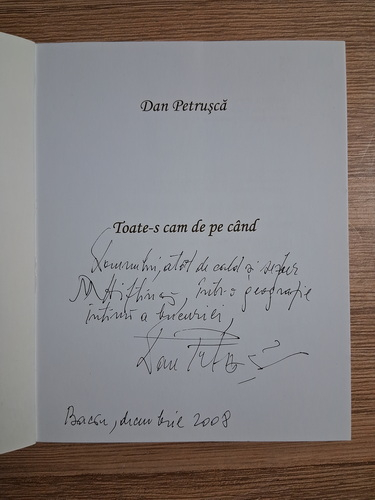 Dan Petruşcă
Toate-s cam de pe când
Domnului, atât de cald şi
într-o geografie
intimă a bucuriei,
Dan
Bacău, decembrie 2008